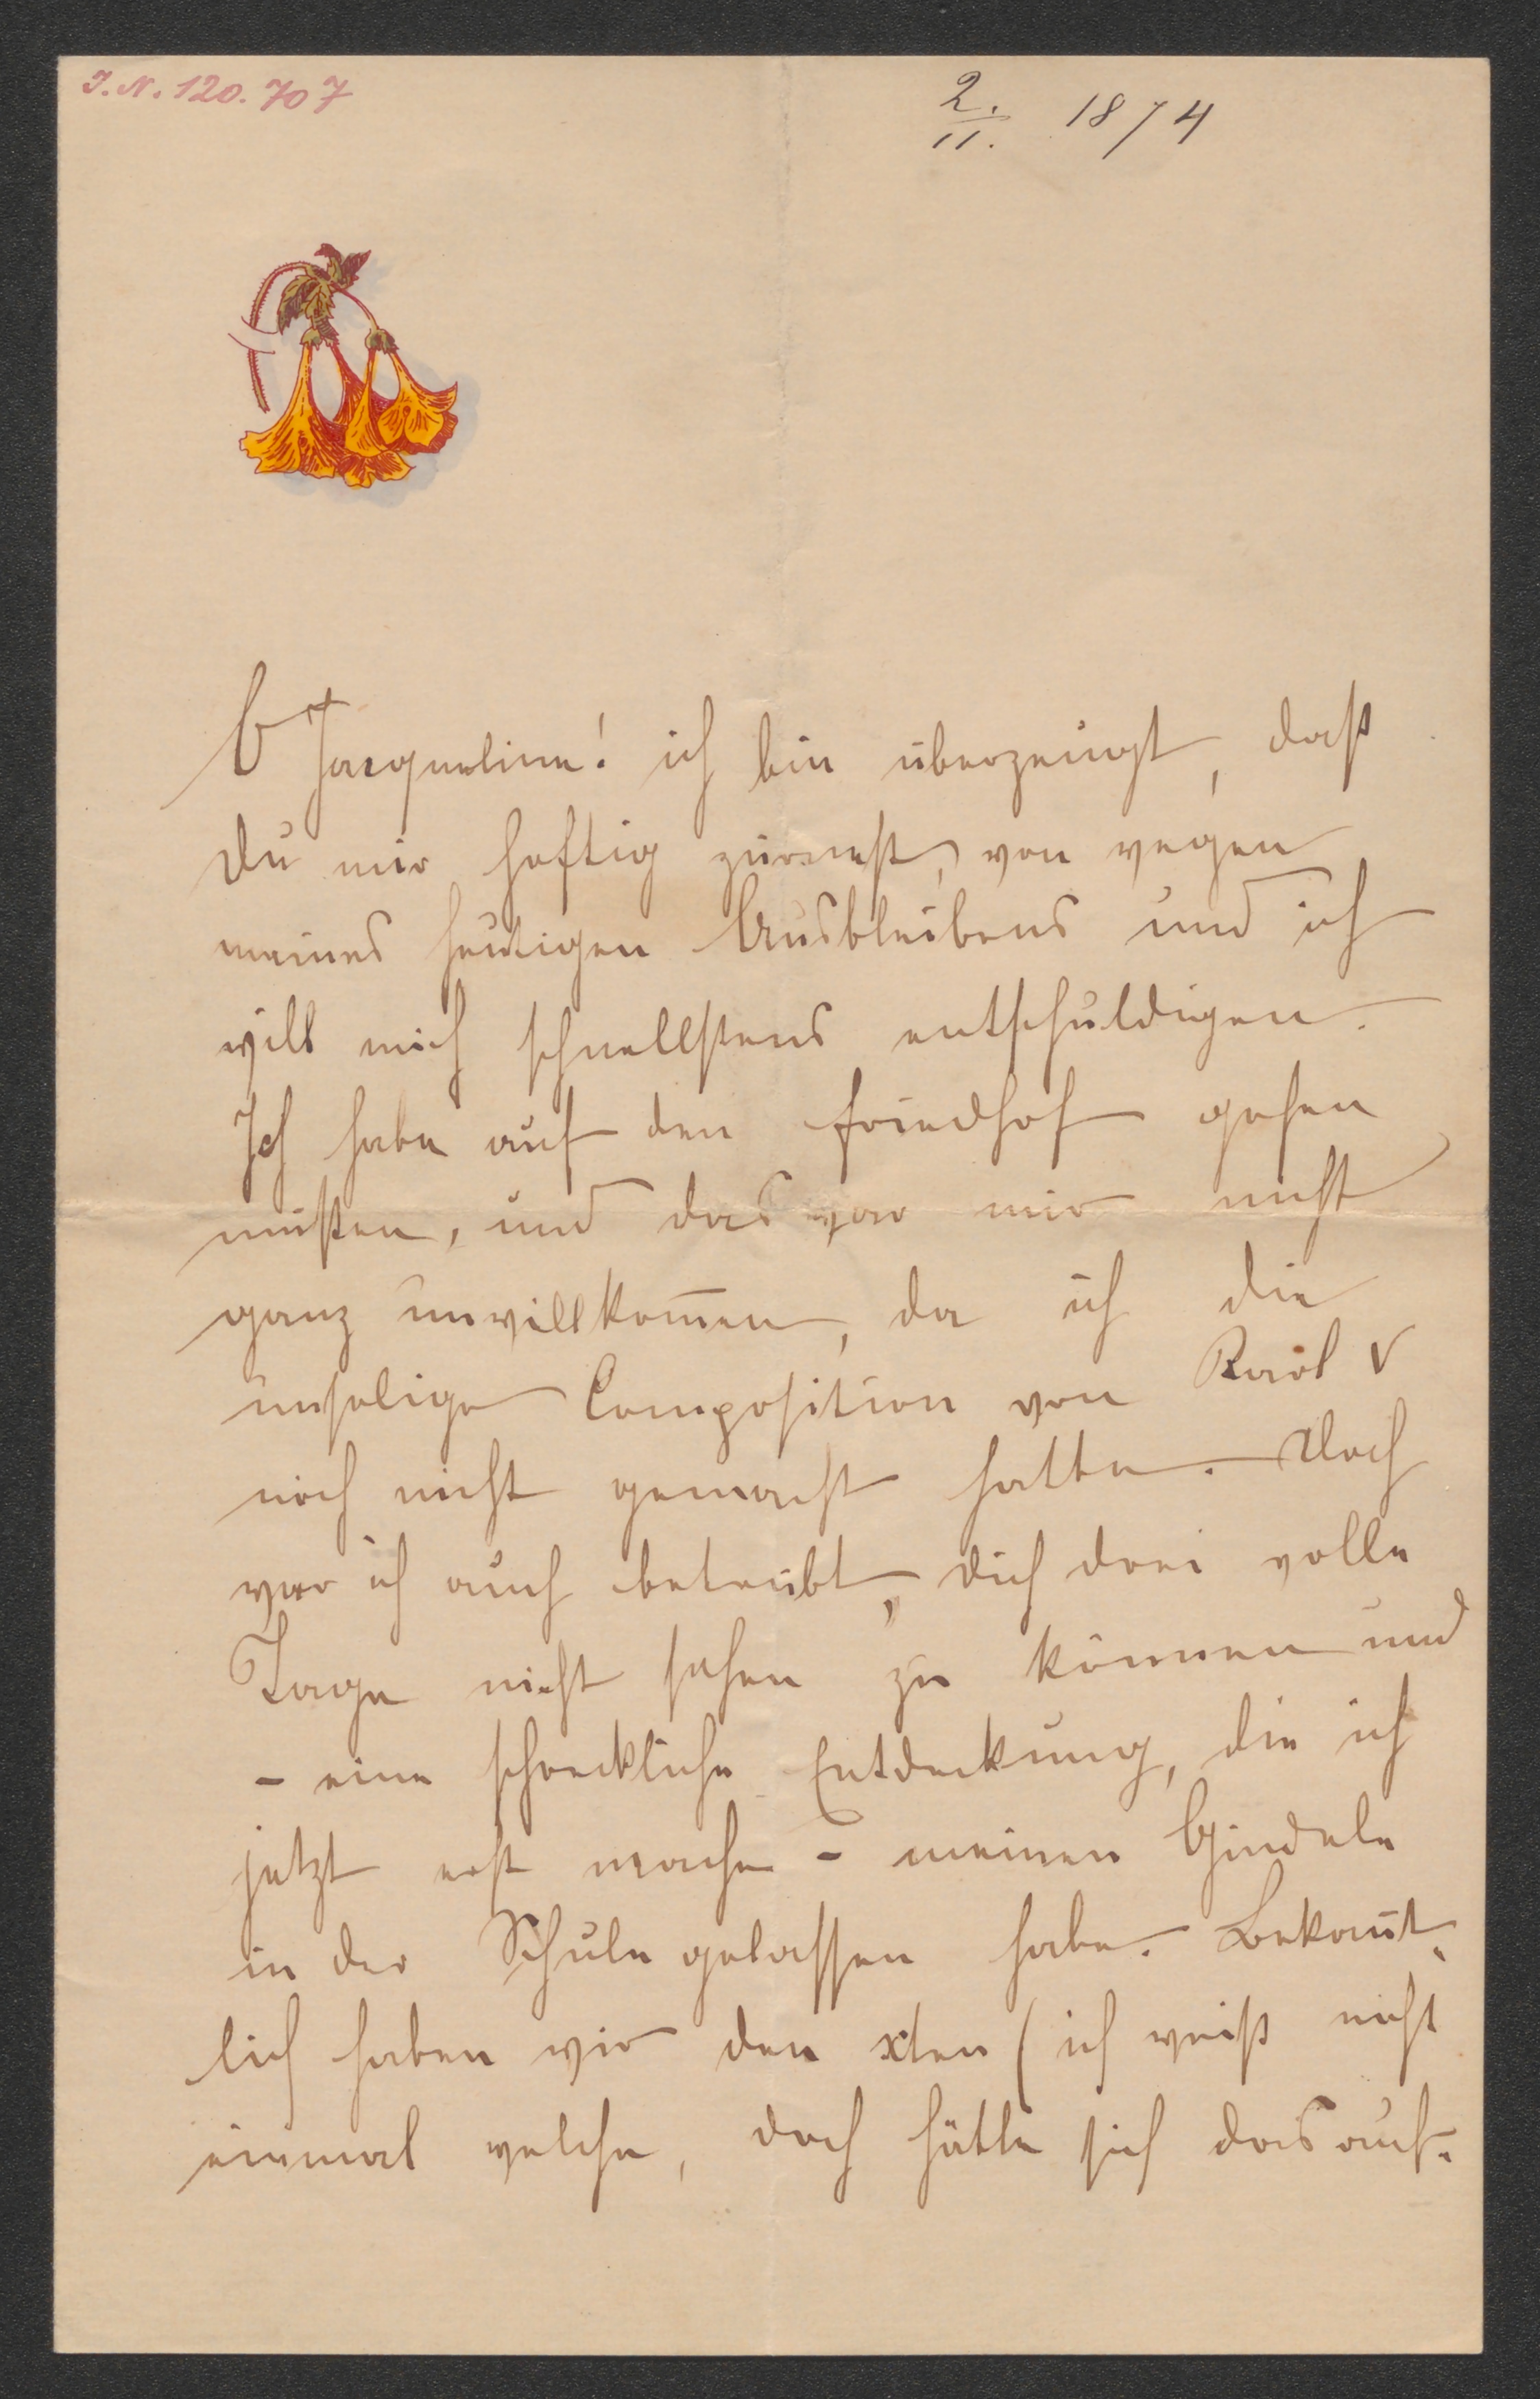 I. N. 120.707
2./11. 1874
O Jacqueline! ich bin überzeugt, daß
Du mir heftig zürnest, von wegen
meines heutigen Ausbleibens und ich
will mich schnellstens entschuldigen.
Ich habe auf den Friedhof gehen
müßen, und das war mir nicht
ganz unwillkom̄en, da ich die
unselige Composition von Karl V
noch nicht gemacht hatte. Doch
war ich auch betrübt, Dich drei volle
Tage nicht sehen zu können und
- eine schreckliche Entdeckung, die ich
jetzt erst mache - meinen Gindele
in der Schule gelassen habe. Bekan̄t-
lich haben wir den xten (ich weiß nicht
einmal welche, doch hätte sich das auf-